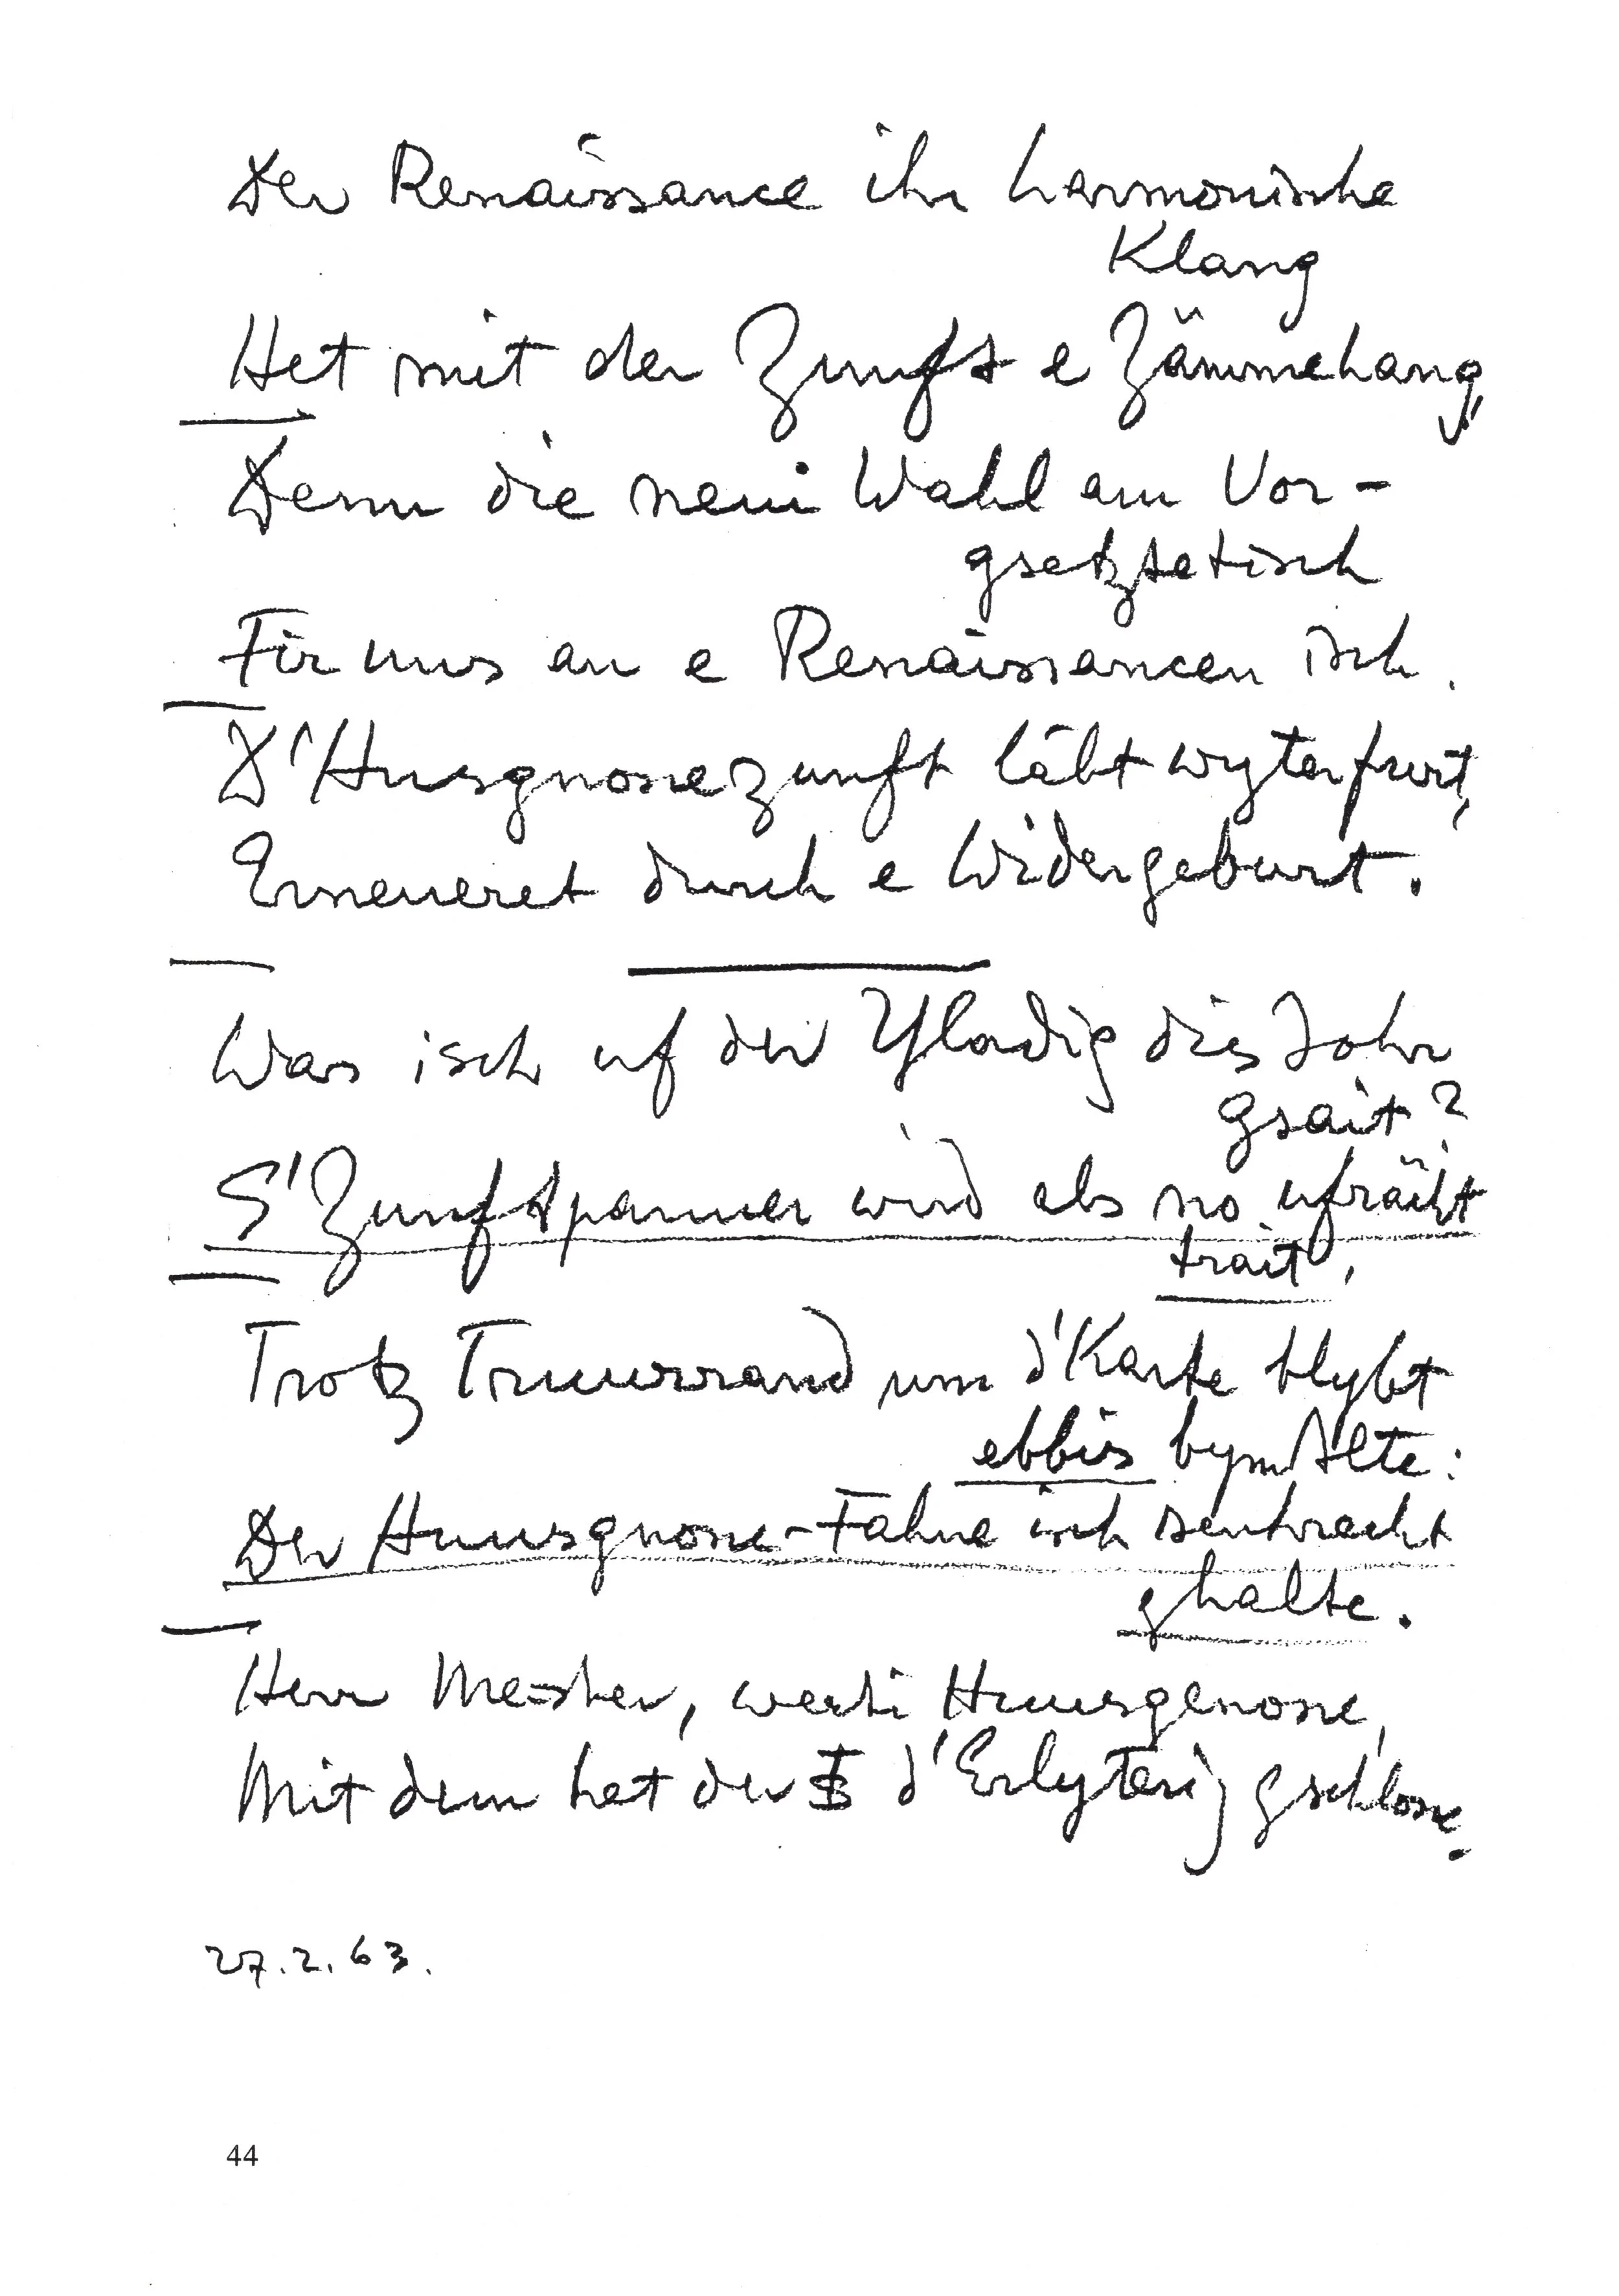 Der Renaissance ihr harmonische
Klang
Het mit der Zunft e Zämmehang,
Denn die neui Wahl am Vor-
gsetztetisch
Fir uns au e Renaissancen isch.
D'Husgnossezunft läbt wyterfurt,
Erneueret durch e Widergeburt.
Was isch uf der Yladig die Johr
gsait?
S'Zunftpanner wird als no ufrächt
trait,
Trotz Truurrand um d'Karte blybt
ebbis bym Alte:
Der Huusgnosse-Fahne isch senkrecht
ghalte.
Herr Meister, werti Huusgenosse,
Mit dem het der d'Erlyterig gschlosse.
27.2.63.
44